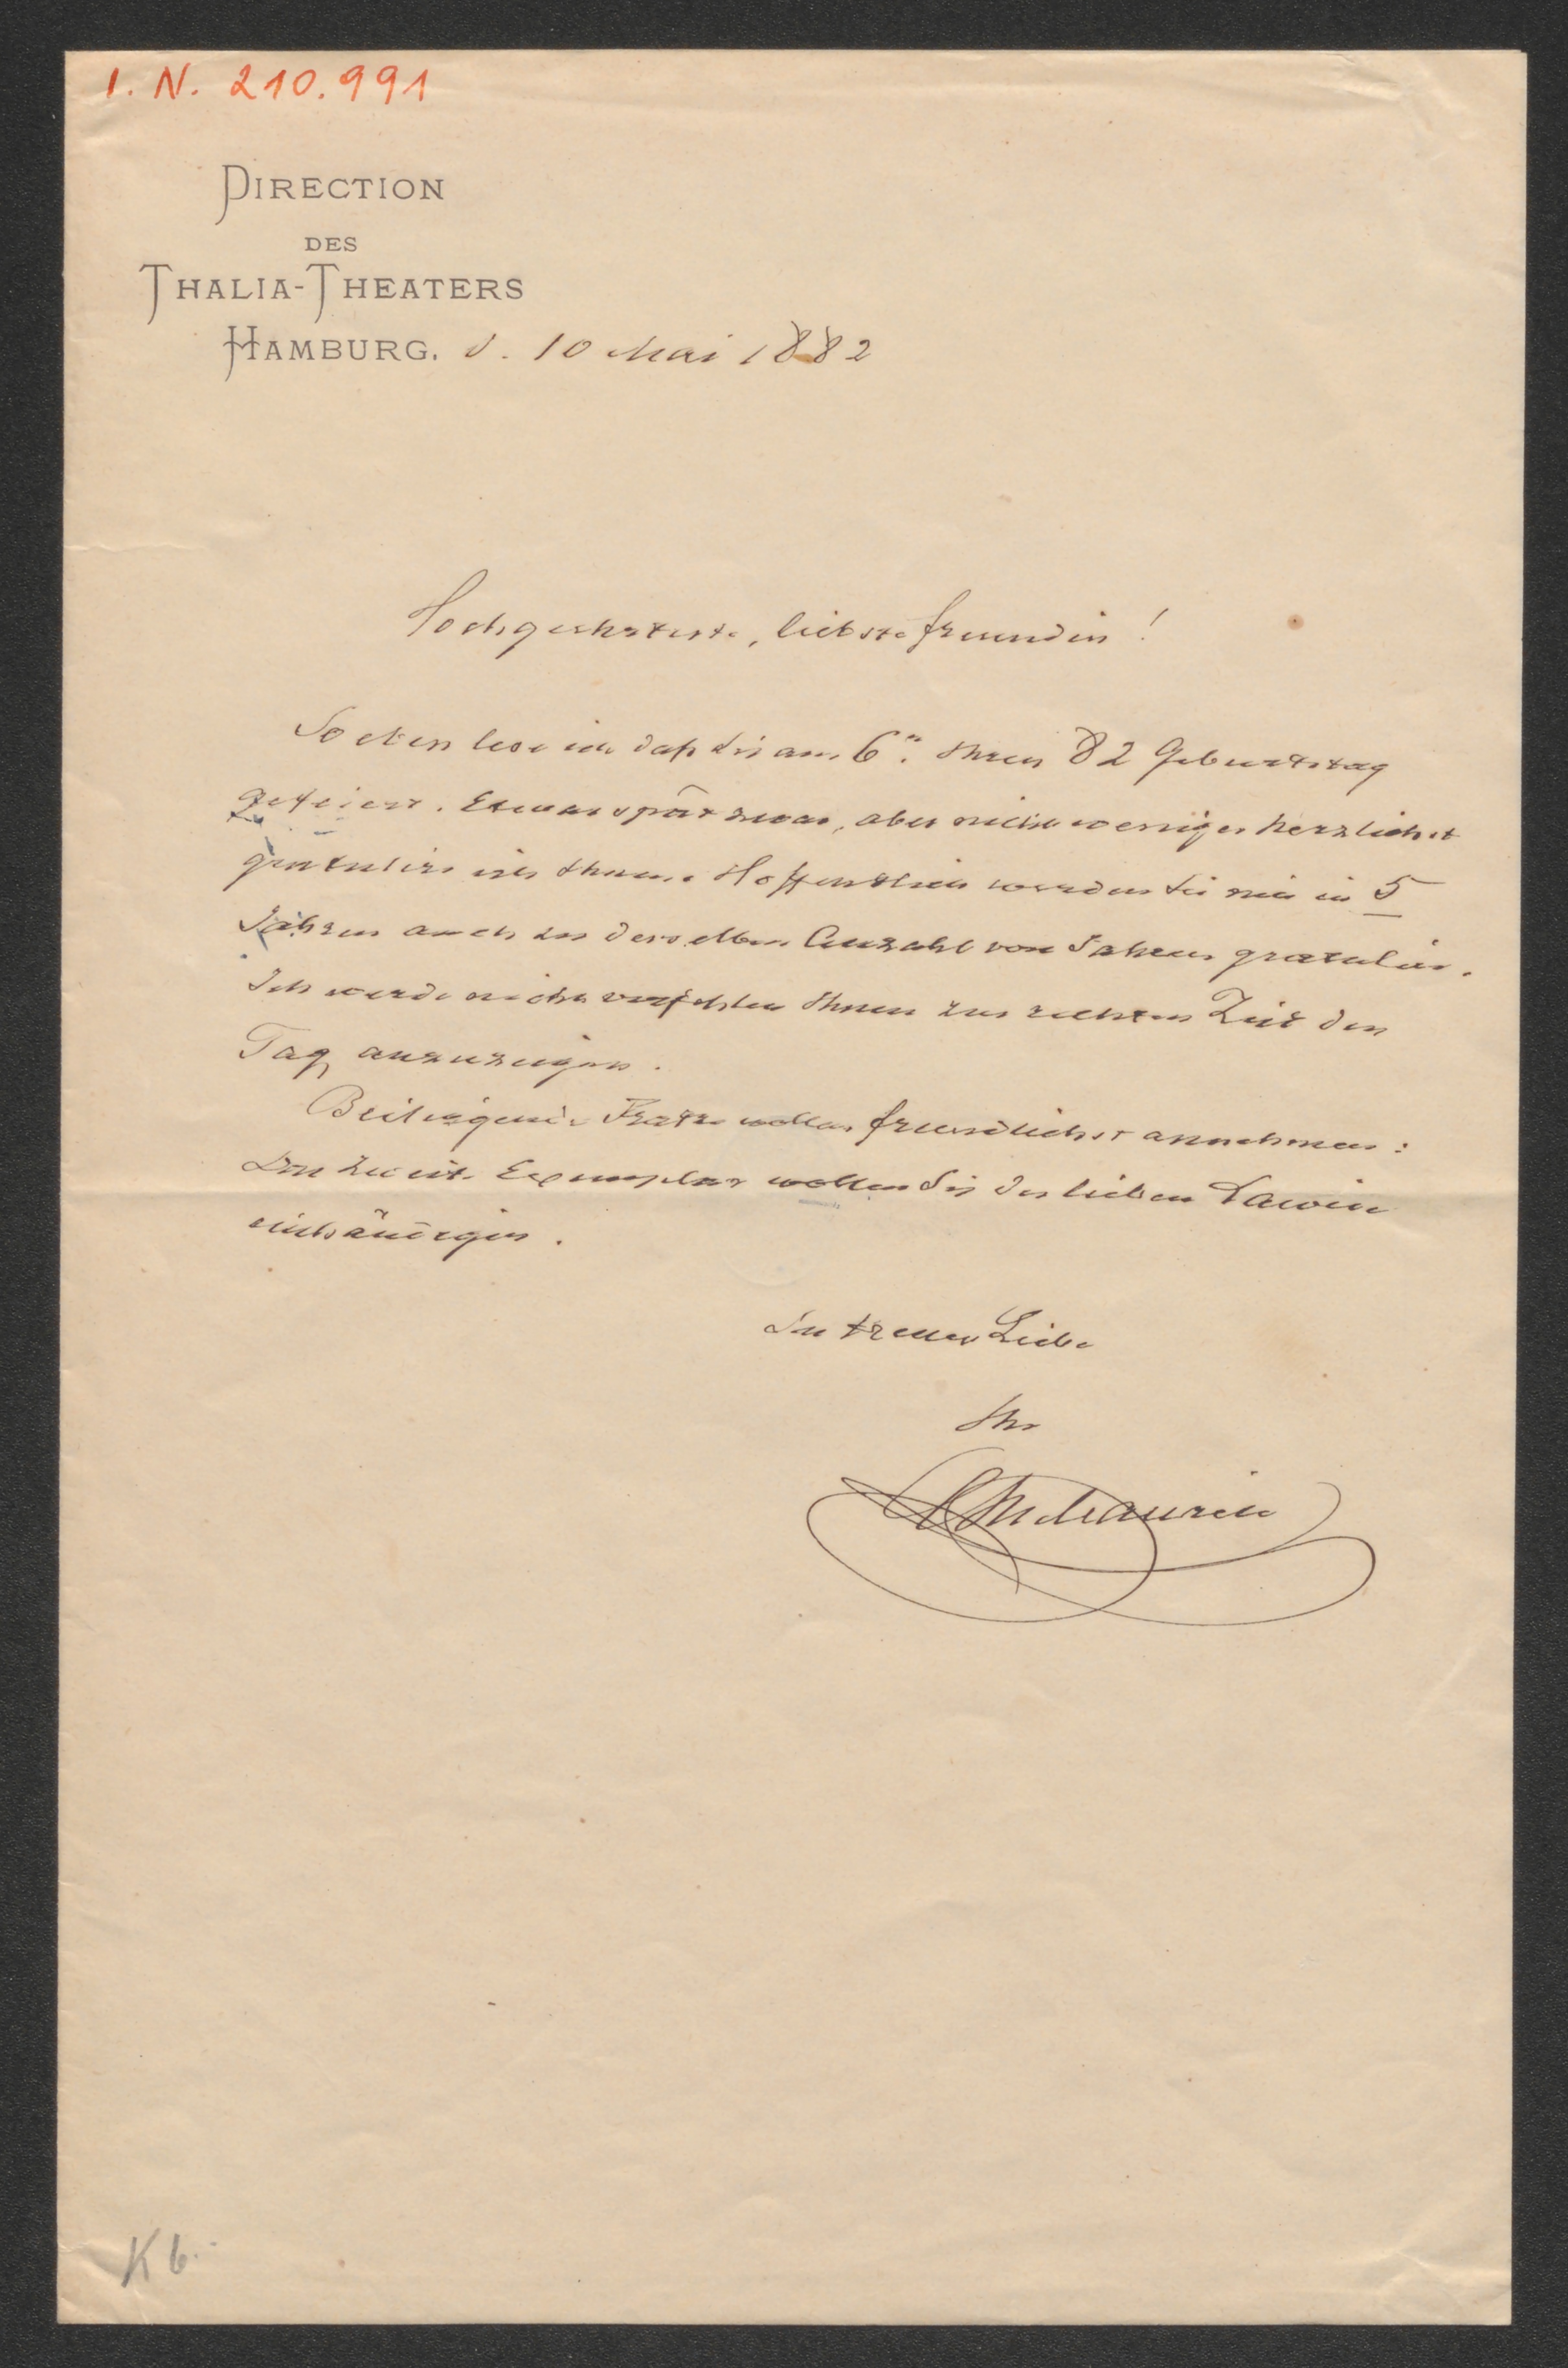 I. N. 210.991
DIRECTION
DES
THALIA-THEATERS
HAMBURG. d. 10 Mai 1882
Hochgeehrteste, liebste Freundin!
So eben lese ich daß Sie am 6n. Ihren 82 Geburtstag
gefeiert. Etwas spät zwar, aber nicht weniger herzlichst
gratulire ich Ihnen. Hoffentlich werden Sie mir in 5
Jahren auch zu derselben Anzahl von Jahren gratulir.
Ich werde nicht verfehlen Ihnen zur rechten Zeit den
Tag anzuzeigen.
Beiliegende Fratze wollen freundlichst annehmen:
Das zweite Exemplar wollen Sie der lieben
einhändigen.
In treuer Liebe
Ihr
Maurice
K b.